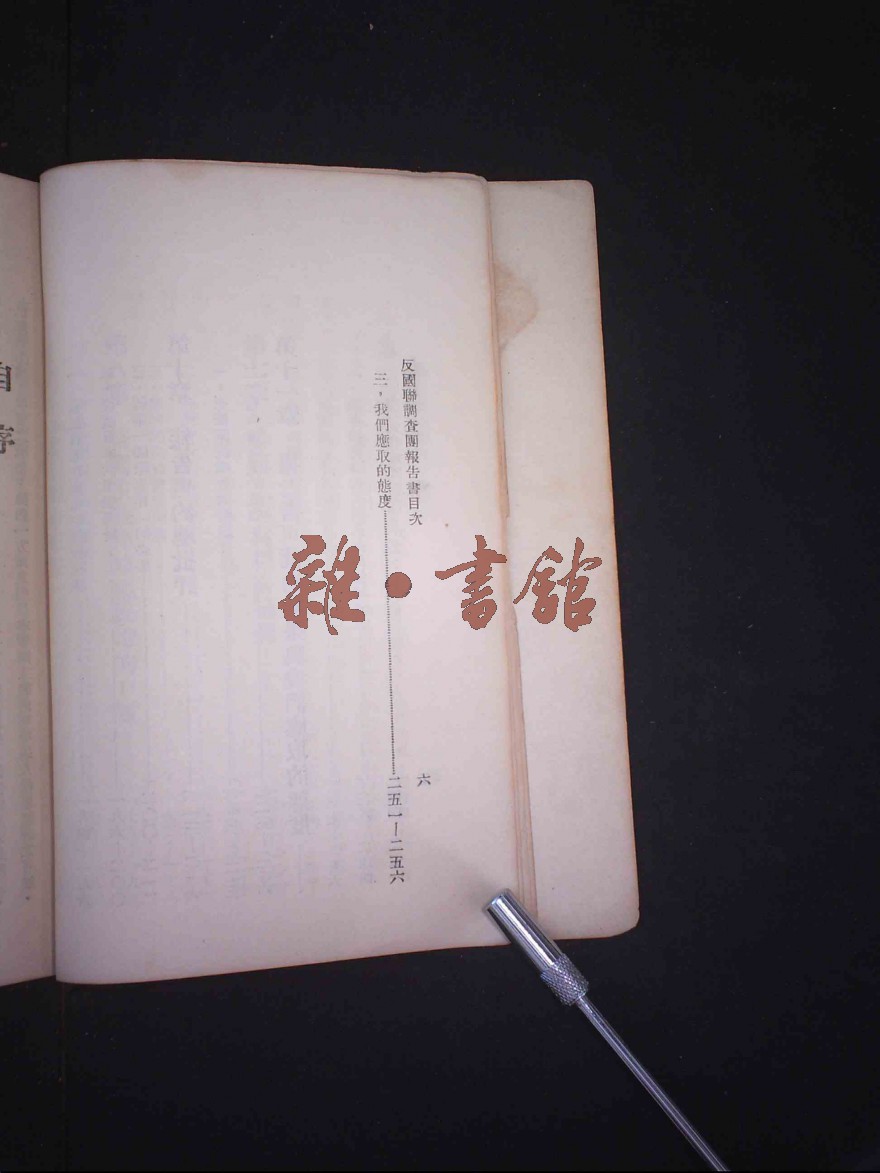 反國聯調查團報告書目次
六
三，我們應取的態度……二五一—二五六
自序
雜•書館